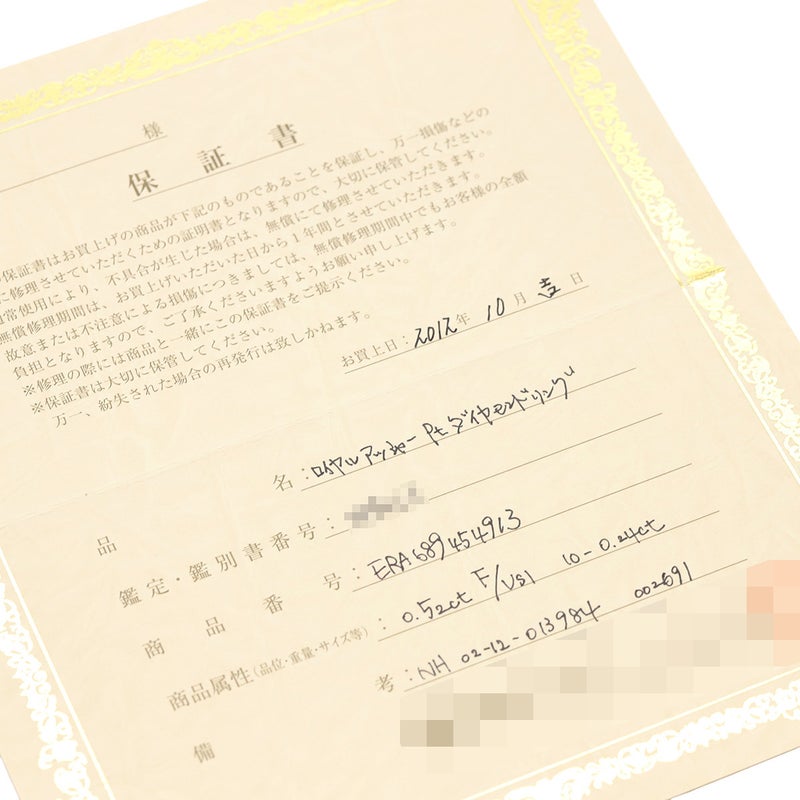 様
保証書
保証書はお買上げの商品が下記のものであることを保証し、万一損傷などの
に修理させていただくための証明書となりますので、大切に保管してください。
常使用により、不具合が生じた場合は、無償にて修理させていただきます。
無償修理期間は、お買上げいただいた日から1年間とさせていただきます。
故意または不注意による損傷につきましては、無償修理期間中でもお客様の全額
負担となりますので、ご了承くださいますようお願い申し上げます。
※修理の際には商品と一緒にこの保証書をご提示ください。
※保証書は大切に保管してください。
万一、紛失された場合の再発行は致しかねます。
お買上日：2012年 10月 吉日
品名：ロイヤルアッシャー Ptダイヤモンドリング
鑑定・鑑別書番号：
商品番号：ERA689454913
商品属性(品位・重量・サイズ等)：0.52ct F/VS1 10-0.24ct
備考：NH 02-12-013984 002691